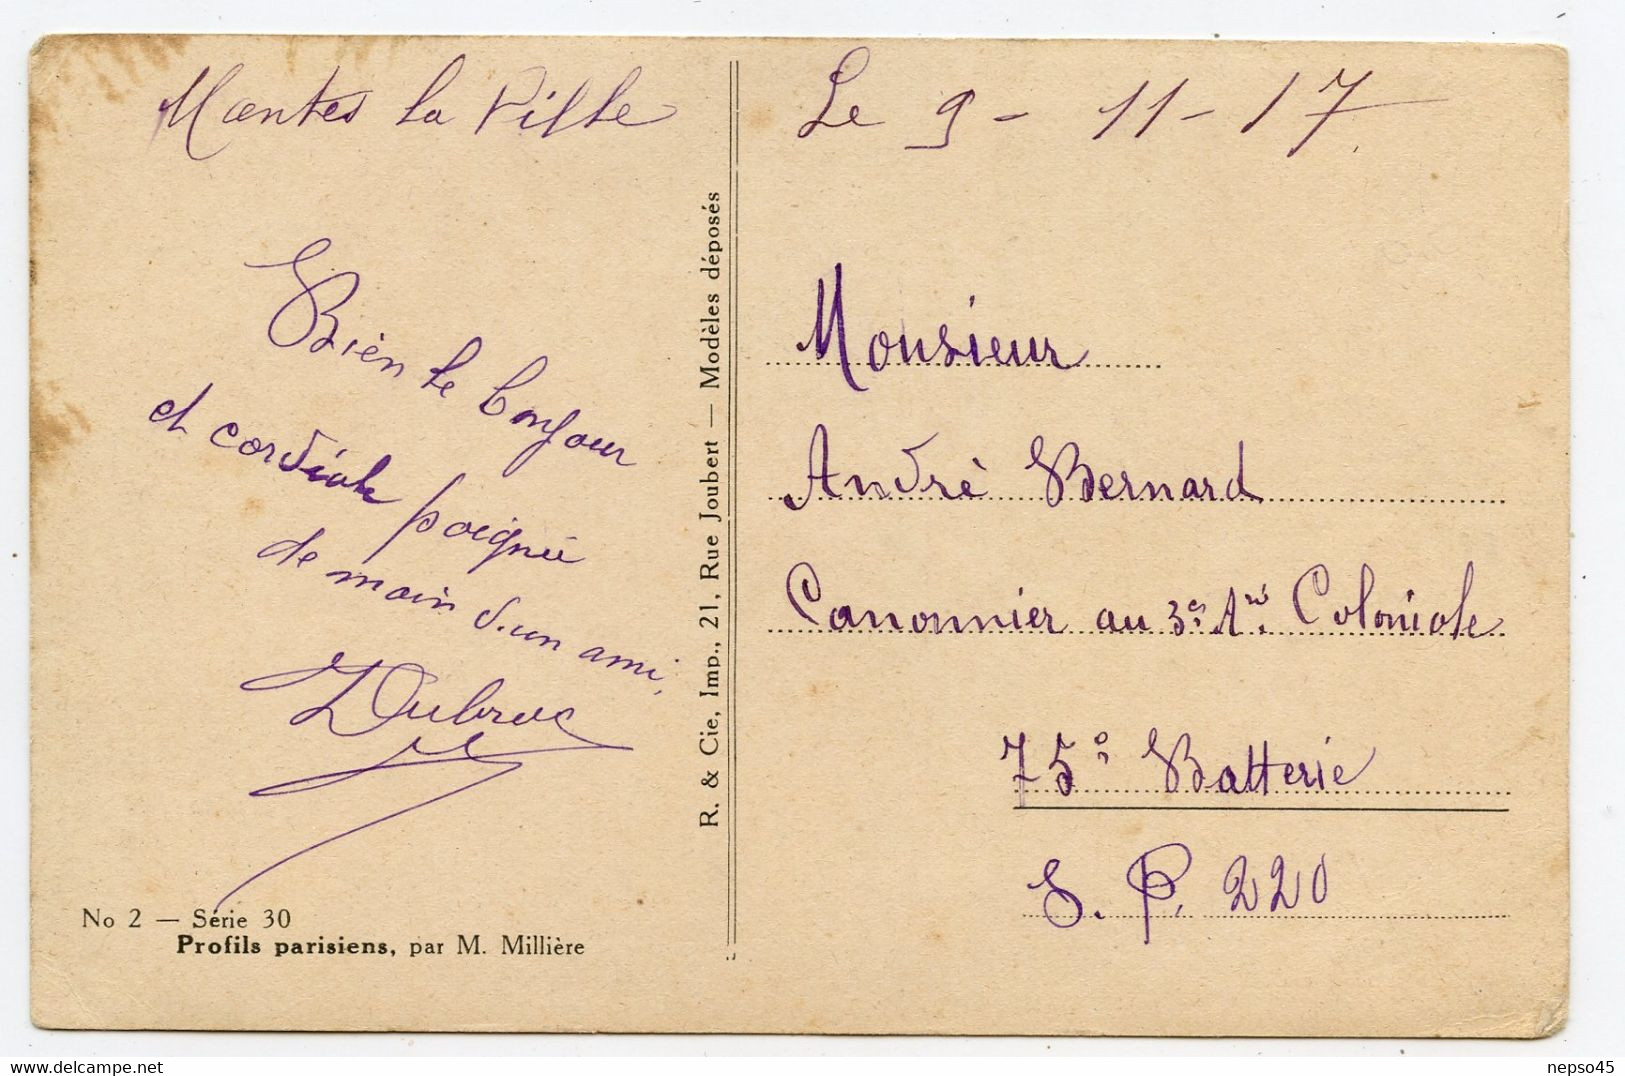 Mantes la Ville
Le 9 - 11 - 17
Bien le bonjour
et cordiale poignée
de main d'un ami,
R. & Cie, Imp., 21, Rue Joubert — Modèles déposés
No 2 — Série 30
Profils parisiens, par M. Millière
Monsieur
Andrè Bernard
Canonnier au 3e Coloniale
75e Batterie
S. P. 220
delcampe.net
nepso45